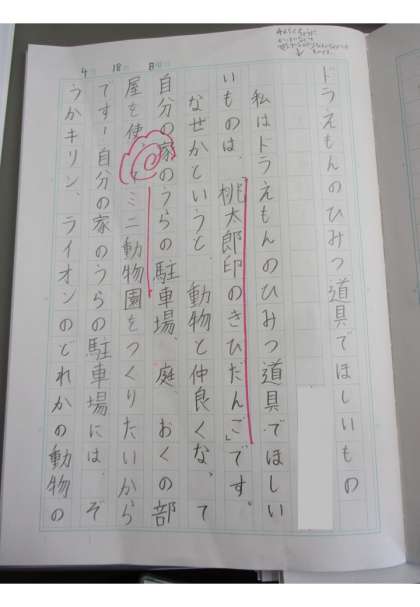 ドラえもんのひみつ道具でほしいもの
私はドラえもんのひみつ道具でほしい
いものは、「桃太郎印のきびだんご」です。
なぜかというと、動物と仲良くなって
自分の家のうらの駐車場、庭、おくの部
屋を使ミニ動物園をつくりたいから
です！自分の家のうらの駐車場には、ぞ
うかキリン、ライオンのどれかの動物の
4 18